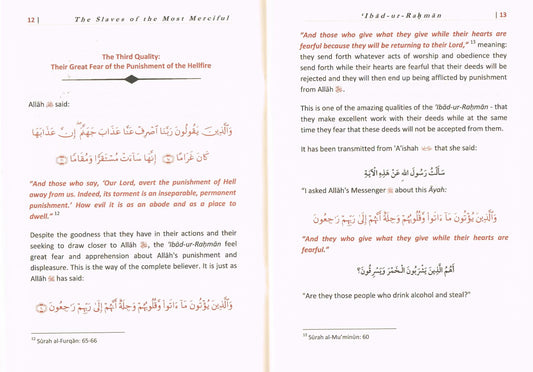 12 | The Slaves of the Most Merciful
The Third Quality:
Their Great Fear of the Punishment of the Hellfire
Allāh said:
وَٱلَّذِينَ يَقُولُونَ رَبَّنَا ٱصْرِفْ عَنَّا عَذَابَ جَهَنَّمَ ۖ إِنَّ عَذَابَهَا
كَانَ غَرَامًا ۝ إِنَّهَا سَآءَتْ مُسْتَقَرًّا وَمُقَامًا ۝
"And those who say, 'Our Lord, avert the punishment of Hell
away from us. Indeed, its torment is an inseparable, permanent
punishment.' How evil it is as an abode and as a place to
dwell." 12
Despite the goodness that they have in their actions and their
seeking to draw closer to Allāh ﷻ, the 'Ibād-ur-Raḥmān feel
great fear and apprehension about Allāh's punishment and
displeasure. This is the way of the complete believer. It is just as
Allāh ﷻ has said:
وَٱلَّذِينَ يُؤْتُونَ مَآ ءَاتَوا۟ وَّقُلُوبُهُمْ وَجِلَةٌ أَنَّهُمْ إِلَىٰ رَبِّهِمْ رَٰجِعُونَ ۝
12 Sūrah al-Furqān: 65-66
'Ibād-ur-Raḥmān | 13
"And those who give what they give while their hearts are
fearful because they will be returning to their Lord," 13 meaning:
they send forth whatever acts of worship and obedience they
send forth while they are fearful that their deeds will be
rejected and they will then end up being afflicted by punishment
from Allāh ﷻ.
This is one of the amazing qualities of the 'Ibād-ur-Raḥmān - that
they make excellent work with their deeds while at the same
time they fear that these deeds will not be accepted from them.
It has been transmitted from 'A'ishah that she said:
سَأَلْتُ رَسُولَ اللهِ عَنْ هَذِهِ الْآيَةِ
"I asked Allāh's Messenger ﷺ about this Āyah:
وَٱلَّذِينَ يُؤْتُونَ مَآ ءَاتَوا۟ وَّقُلُوبُهُمْ وَجِلَةٌ أَنَّهُمْ إِلَىٰ رَبِّهِمْ رَٰجِعُونَ
"And they who give what they give while their hearts are
fearful."
أَهُمُ الَّذِينَ يَشْرَبُونَ الْخَمْرَ وَيَسْرِقُونَ؟
"Are they those people who drink alcohol and steal?"
13 Sūrah al-Mu'minūn: 60